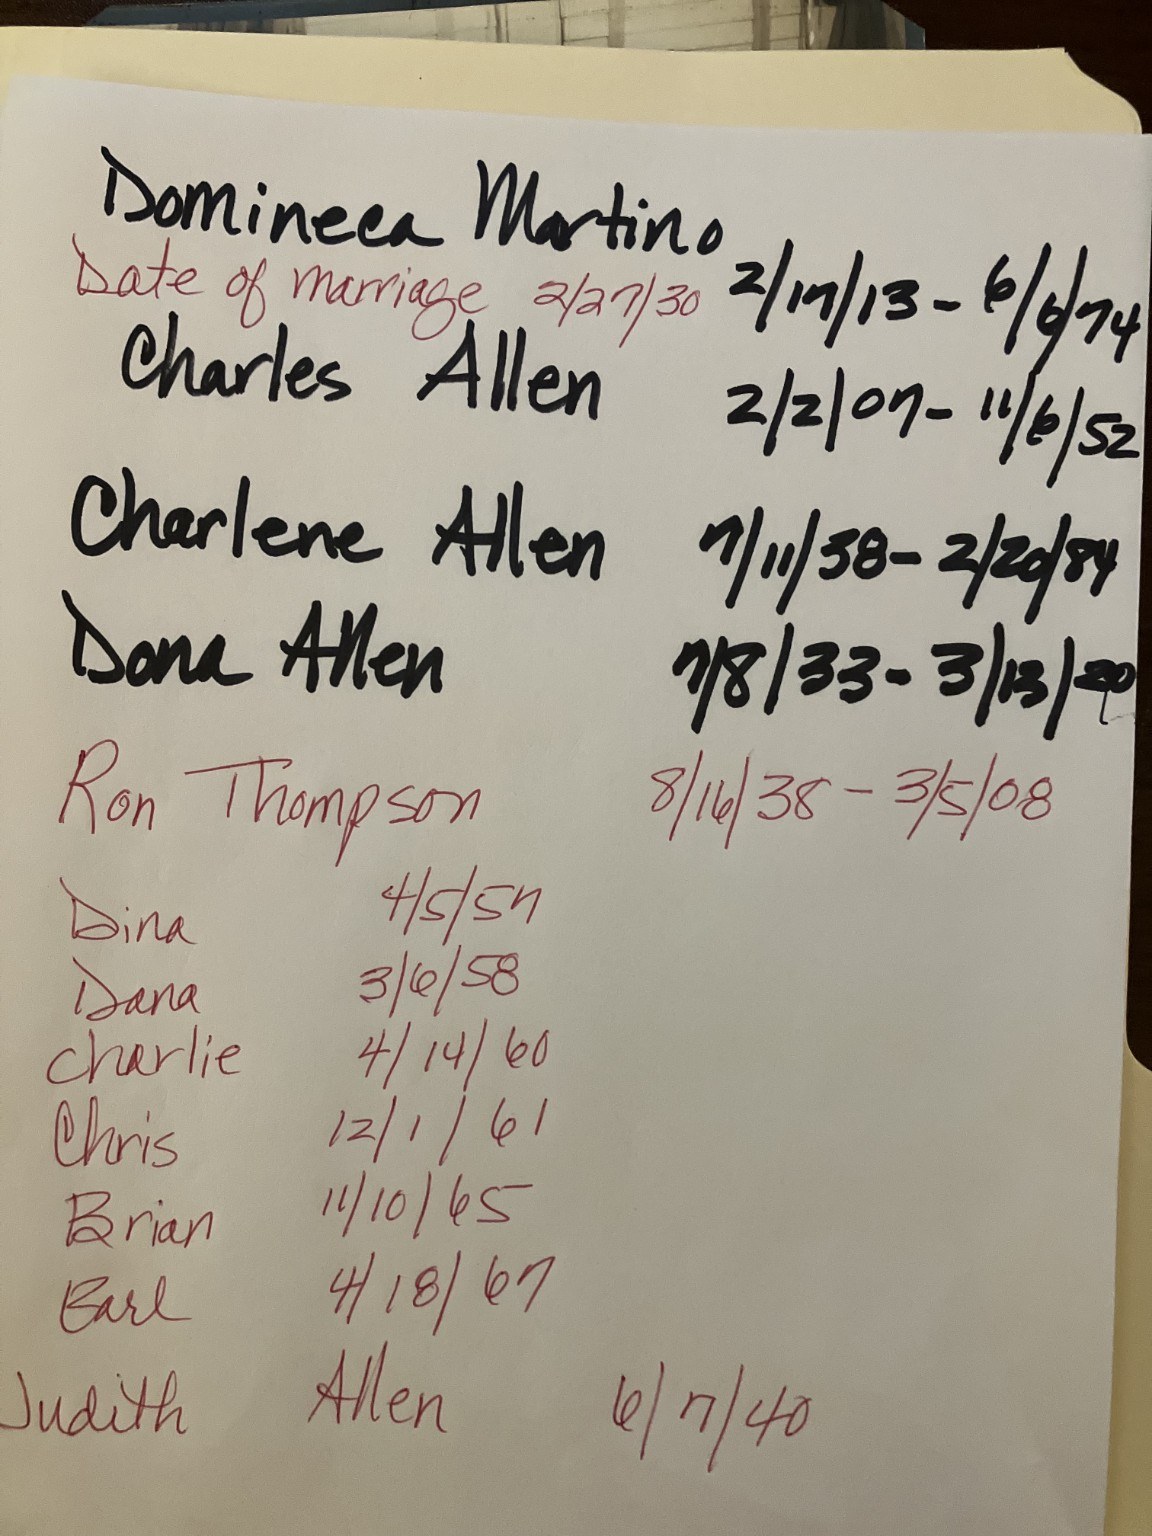 Domineca Martino 2/17/13 - 6/6/74
Date of marriage 2/27/30
Charles Allen 2/2/07 - 11/6/52
Charlene Allen 7/11/38 - 2/20/84
Dona Allen 7/8/33 - 3/13/20
Ron Thompson 8/16/38 - 3/5/08
Dina 4/5/57
Dana 3/6/58
Charlie 4/14/60
Chris 12/1/61
Brian 11/10/65
Earl 4/18/67
Judith Allen 6/7/40